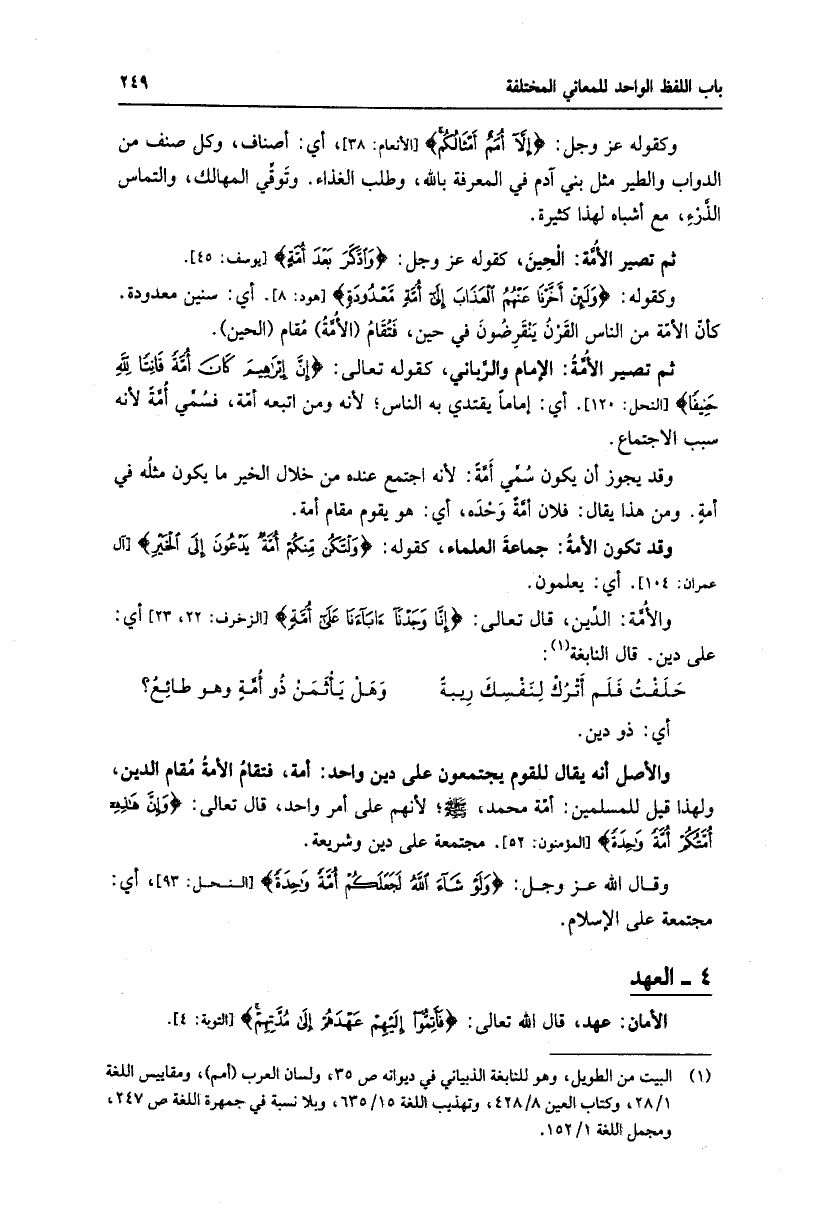 باب اللفظ الواحد للمعاني المختلفة ٢٤٩
وكقوله عز وجل: ﴿إِلَّآ أُمَمٌ أَمْثَالُكُمۚ﴾ [الأنعام: ٣٨]، أي: أصناف، وكل صنف من
الدواب والطير مثل بني آدم في المعرفة بالله، وطلب الغذاء. وتَوقِّي المهالك، والتماس
الذَّرْءِ، مع أشباه لهذا كثيرة.
ثم تصير الأُمَّة: الْحِينَ، كقوله عز وجل: ﴿وَٱدَّكَرَ بَعْدَ أُمَّةٍ﴾ [يوسف: ٤٥].
وكقوله: ﴿وَلَئِنْ أَخَّرْنَا عَنْهُمُ ٱلْعَذَابَ إِلَىٰٓ أُمَّةٍ مَّعْدُودَةٍ﴾ [هود: ٨]. أي: سنين معدودة.
كأنّ الأمّة من الناس القَرْنُ يَنْقَرِضُونَ في حين، فَتُقَامُ (الأُمَّةُ) مُقام (الحين).
ثم تصير الأُمَّةُ: الإمام والرَّباني، كقوله تعالى: ﴿إِنَّ إِبْرَٰهِيمَ كَانَ أُمَّةً قَانِتًا لِّلَّهِ
حَنِيفًا﴾ [النحل: ١٢٠]. أي: إماماً يقتدي به الناس؛ لأنه ومن اتبعه أمّة، فسُمِّي أُمَّةً لأنه
سبب الاجتماع.
وقد يجوز أن يكون سُمِّي أُمَّةً: لأنه اجتمع عنده من خلال الخير ما يكون مثلُه في
أمةٍ. ومن هذا يقال: فلان أمَّةٌ وَحْدَه، أي: هو يقوم مقام أمة.
وقد تكون الأمةُ: جماعةَ العلماء، كقوله: ﴿وَلْتَكُن مِّنكُمْ أُمَّةٌ يَدْعُونَ إِلَى ٱلْخَيْرِ﴾ [آل
عمران: ١٠٤]. أي: يعلمون.
والأُمَّة: الدِّين، قال تعالى: ﴿إِنَّا وَجَدْنَآ ءَابَآءَنَا عَلَىٰٓ أُمَّةٍ﴾ [الزخرف: ٢٢، ٢٣] أي:
على دين. قال النابغة(١):
حَلَفْتُ فَلَم أَتْرُكْ لِنَفْسِكَ رِيبةً وَهَلْ يَأْثَمَنْ ذُو أُمَّةٍ وهو طائِعُ؟
أي: ذو دين.
والأصل أنه يقال للقوم يجتمعون على دين واحد: أمة، فتقامُ الأمةُ مُقام الدين،
ولهذا قيل للمسلمين: أمّة محمد، ﷺ؛ لأنهم على أمر واحد، قال تعالى: ﴿وَإِنَّ هَٰذِهِۦٓ
أُمَّتُكُمْ أُمَّةً وَٰحِدَةً﴾ [المؤمنون: ٥٢]. مجتمعة على دين وشريعة.
وقال الله عز وجل: ﴿وَلَوْ شَآءَ ٱللَّهُ لَجَعَلَكُمْ أُمَّةً وَٰحِدَةً﴾ [النحل: ٩٣]، أي:
مجتمعة على الإسلام.
٤ - العهد
الأمان: عهد، قال الله تعالى: ﴿فَأَتِمُّوٓا۟ إِلَيْهِمْ عَهْدَهُمْ إِلَىٰ مُدَّتِهِمْۚ﴾ [التوبة: ٤].
(١) البيت من الطويل، وهو للنابغة الذبياني في ديوانه ص ٣٥، ولسان العرب (أمم)، ومقاييس اللغة
٢٨/١، وكتاب العين ٤٢٨/٨، وتهذيب اللغة ١٥/ ٦٣٥، وبلا نسبة في جمهرة اللغة ص ٢٤٧،
ومجمل اللغة ١٥٢/١.